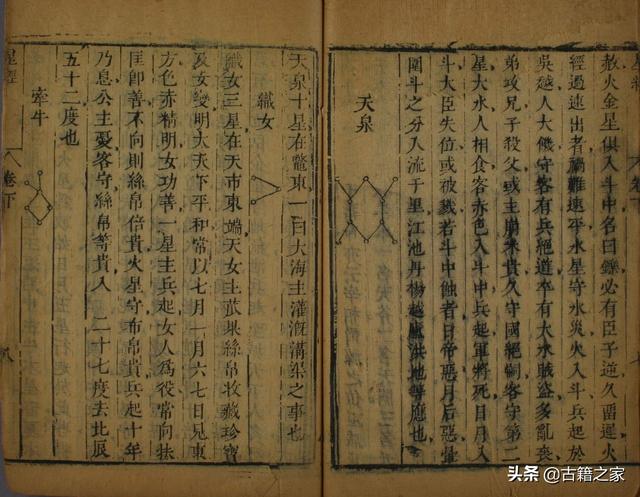 赦火金星俱入斗中名曰鑠必有臣子逆久畱遲火
經過速出者禍難速平水星守水災火入斗兵起於
吳越人大饑守客有兵絕道卒有大水賊盜多亂喪
弟攻兄子殺父或主崩米貴久守國絕嗣客守第二
星大水人相食客赤色入斗中兵起軍將死日月入
斗大臣失位或被戮若斗中蝕者日帝惡月后惡暈
圍斗之分入流于里江池丹楊越廬洪地等應也
天泉
天泉十星在鼈東一曰大海主灌漑溝渠之事也
織女
織女三星在天市東端天女主苽果絲帛收藏珍寶
及女變明大天下平和常以七月一月六七日見東
方色赤精明女功善一星主兵起女人爲役常向扶
匡卽善不向則絲帛倍貴火星守布帛貴兵起十年
乃息公主憂客守絲帛等貴入 二十七度去北辰
五十二度也
牽牛
星經 卷下 八
头条 @古籍之家